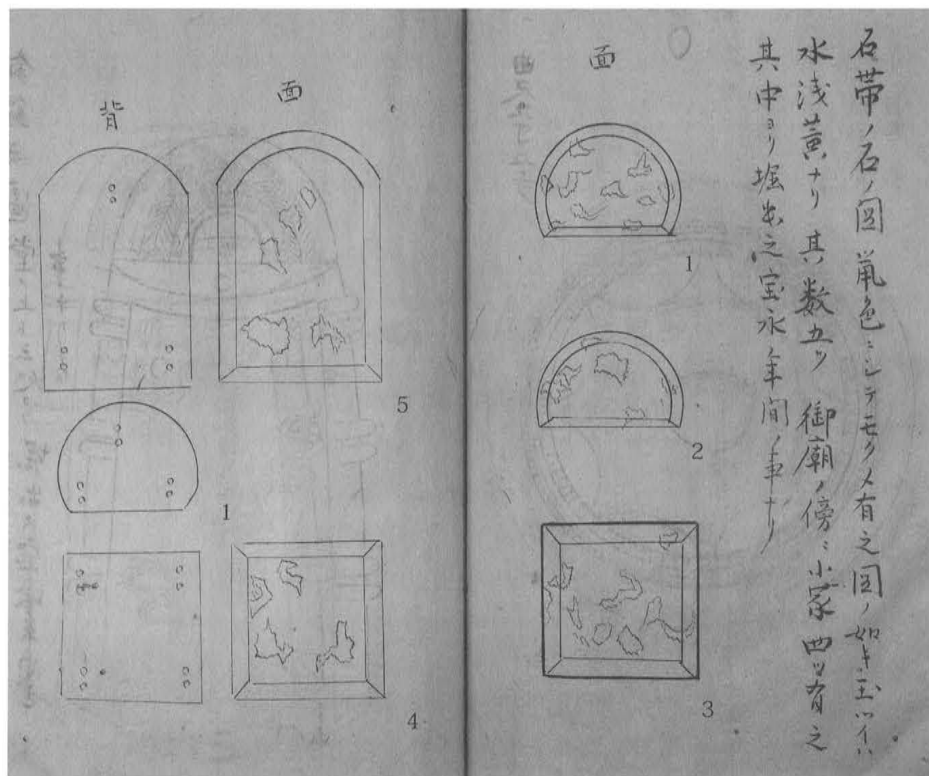 石帯ノ石ノ図 鼠色ニシテモクメ有之図ノ如キ玉ツイハ
水浅黄ナリ 其数五ツ 御廟ノ傍ニ小冢四ツ有之
其中ヨリ堀出之宝永年間ノ事ナリ
面
1
2
3
面
背
5
1
4